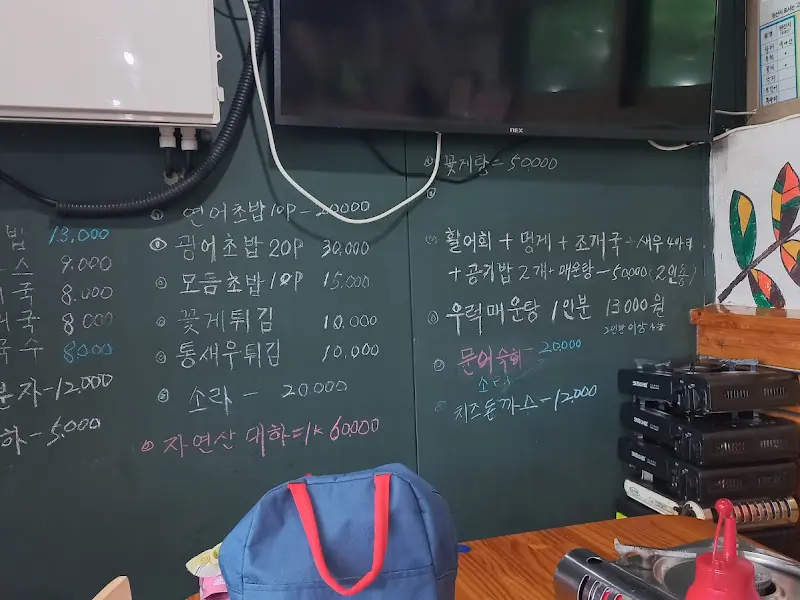 밥 13,000
스 9.000
국 8.000
국 8000
국수 8000
분자-12.000
하-5.000
연어초밥 10P-20000
광어초밥 20P 30,000
모듬초밥 10P 15,000
꽃게튀김 10,000
통새우튀김 10,000
소라 - 20.000
자연산 대하=1K 60,000
NEX
꽃게탕=50,000
활어회 + 멍게 + 조개국 + 새우 4마리
+ 공기밥 2개+매운탕-50,000(2인용)
우럭매운탕 1인분 13000원
2인분 이상
문어숙회-20,000
소라
치즈돈까스-12,000